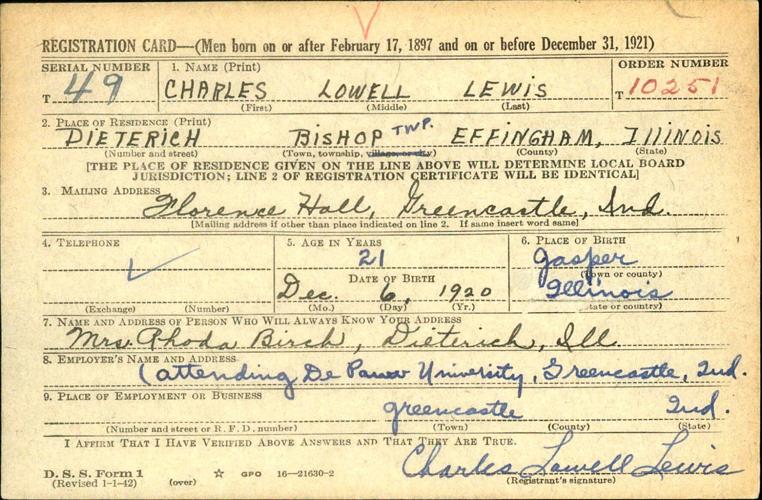 REGISTRATION CARD—(Men born on or after February 17, 1897 and on or before December 31, 1921)
SERIAL NUMBER 1. NAME (Print) ORDER NUMBER
T 49 CHARLES LOWELL LEWIS T 10251
(First) (Middle) (Last)
2. PLACE OF RESIDENCE (Print)
DIETERICH BISHOP TWP. EFFINGHAM, ILLINOIS
(Number and street) (Town, township, village, or city) (County) (State)
[THE PLACE OF RESIDENCE GIVEN ON THE LINE ABOVE WILL DETERMINE LOCAL BOARD
JURISDICTION; LINE 2 OF REGISTRATION CERTIFICATE WILL BE IDENTICAL]
3. MAILING ADDRESS
Florence Hall, Greencastle, Ind.
[Mailing address if other than place indicated on line 2. If same insert word same]
4. TELEPHONE 5. AGE IN YEARS 6. PLACE OF BIRTH
21 Jasper
(Town or county)
DATE OF BIRTH
Dec. 6, 1920 Illinois
(Exchange) (Number) (Mo.) (Day) (Yr.) (State or country)
7. NAME AND ADDRESS OF PERSON WHO WILL ALWAYS KNOW YOUR ADDRESS
Mrs. Rhoda Birch, Dieterich, Ill.
8. EMPLOYER'S NAME AND ADDRESS
(attending De Pauw University, Greencastle, Ind.
9. PLACE OF EMPLOYMENT OR BUSINESS
Greencastle Ind.
(Number and street or R. F. D. number) (Town) (County) (State)
I AFFIRM THAT I HAVE VERIFIED ABOVE ANSWERS AND THAT THEY ARE TRUE.
D. S. S. Form 1 GPO 16—21630-2 Charles Lowell Lewis
(Revised 1-1-42) (over) (Registrant's signature)